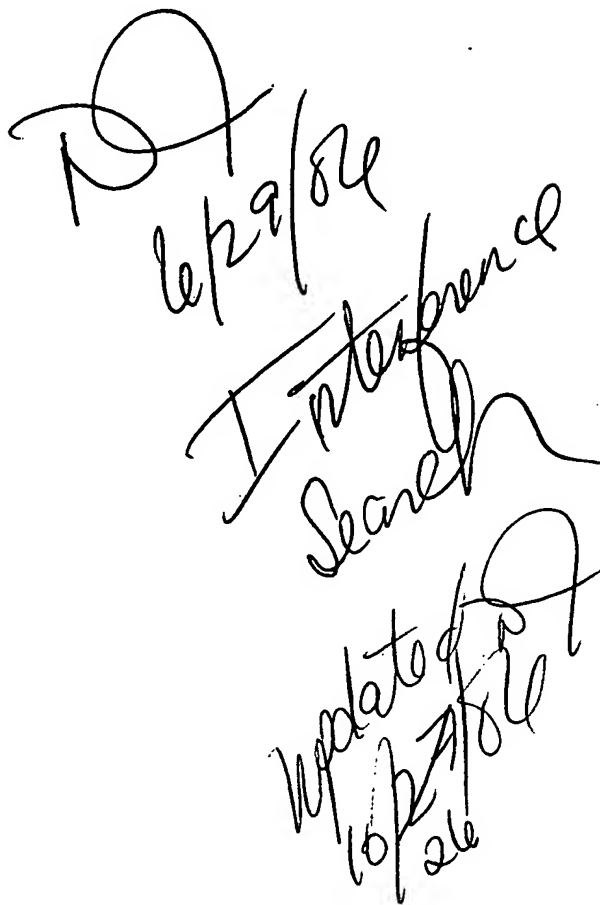 6/29/06
Interference
Search
updated
10/27/06
26